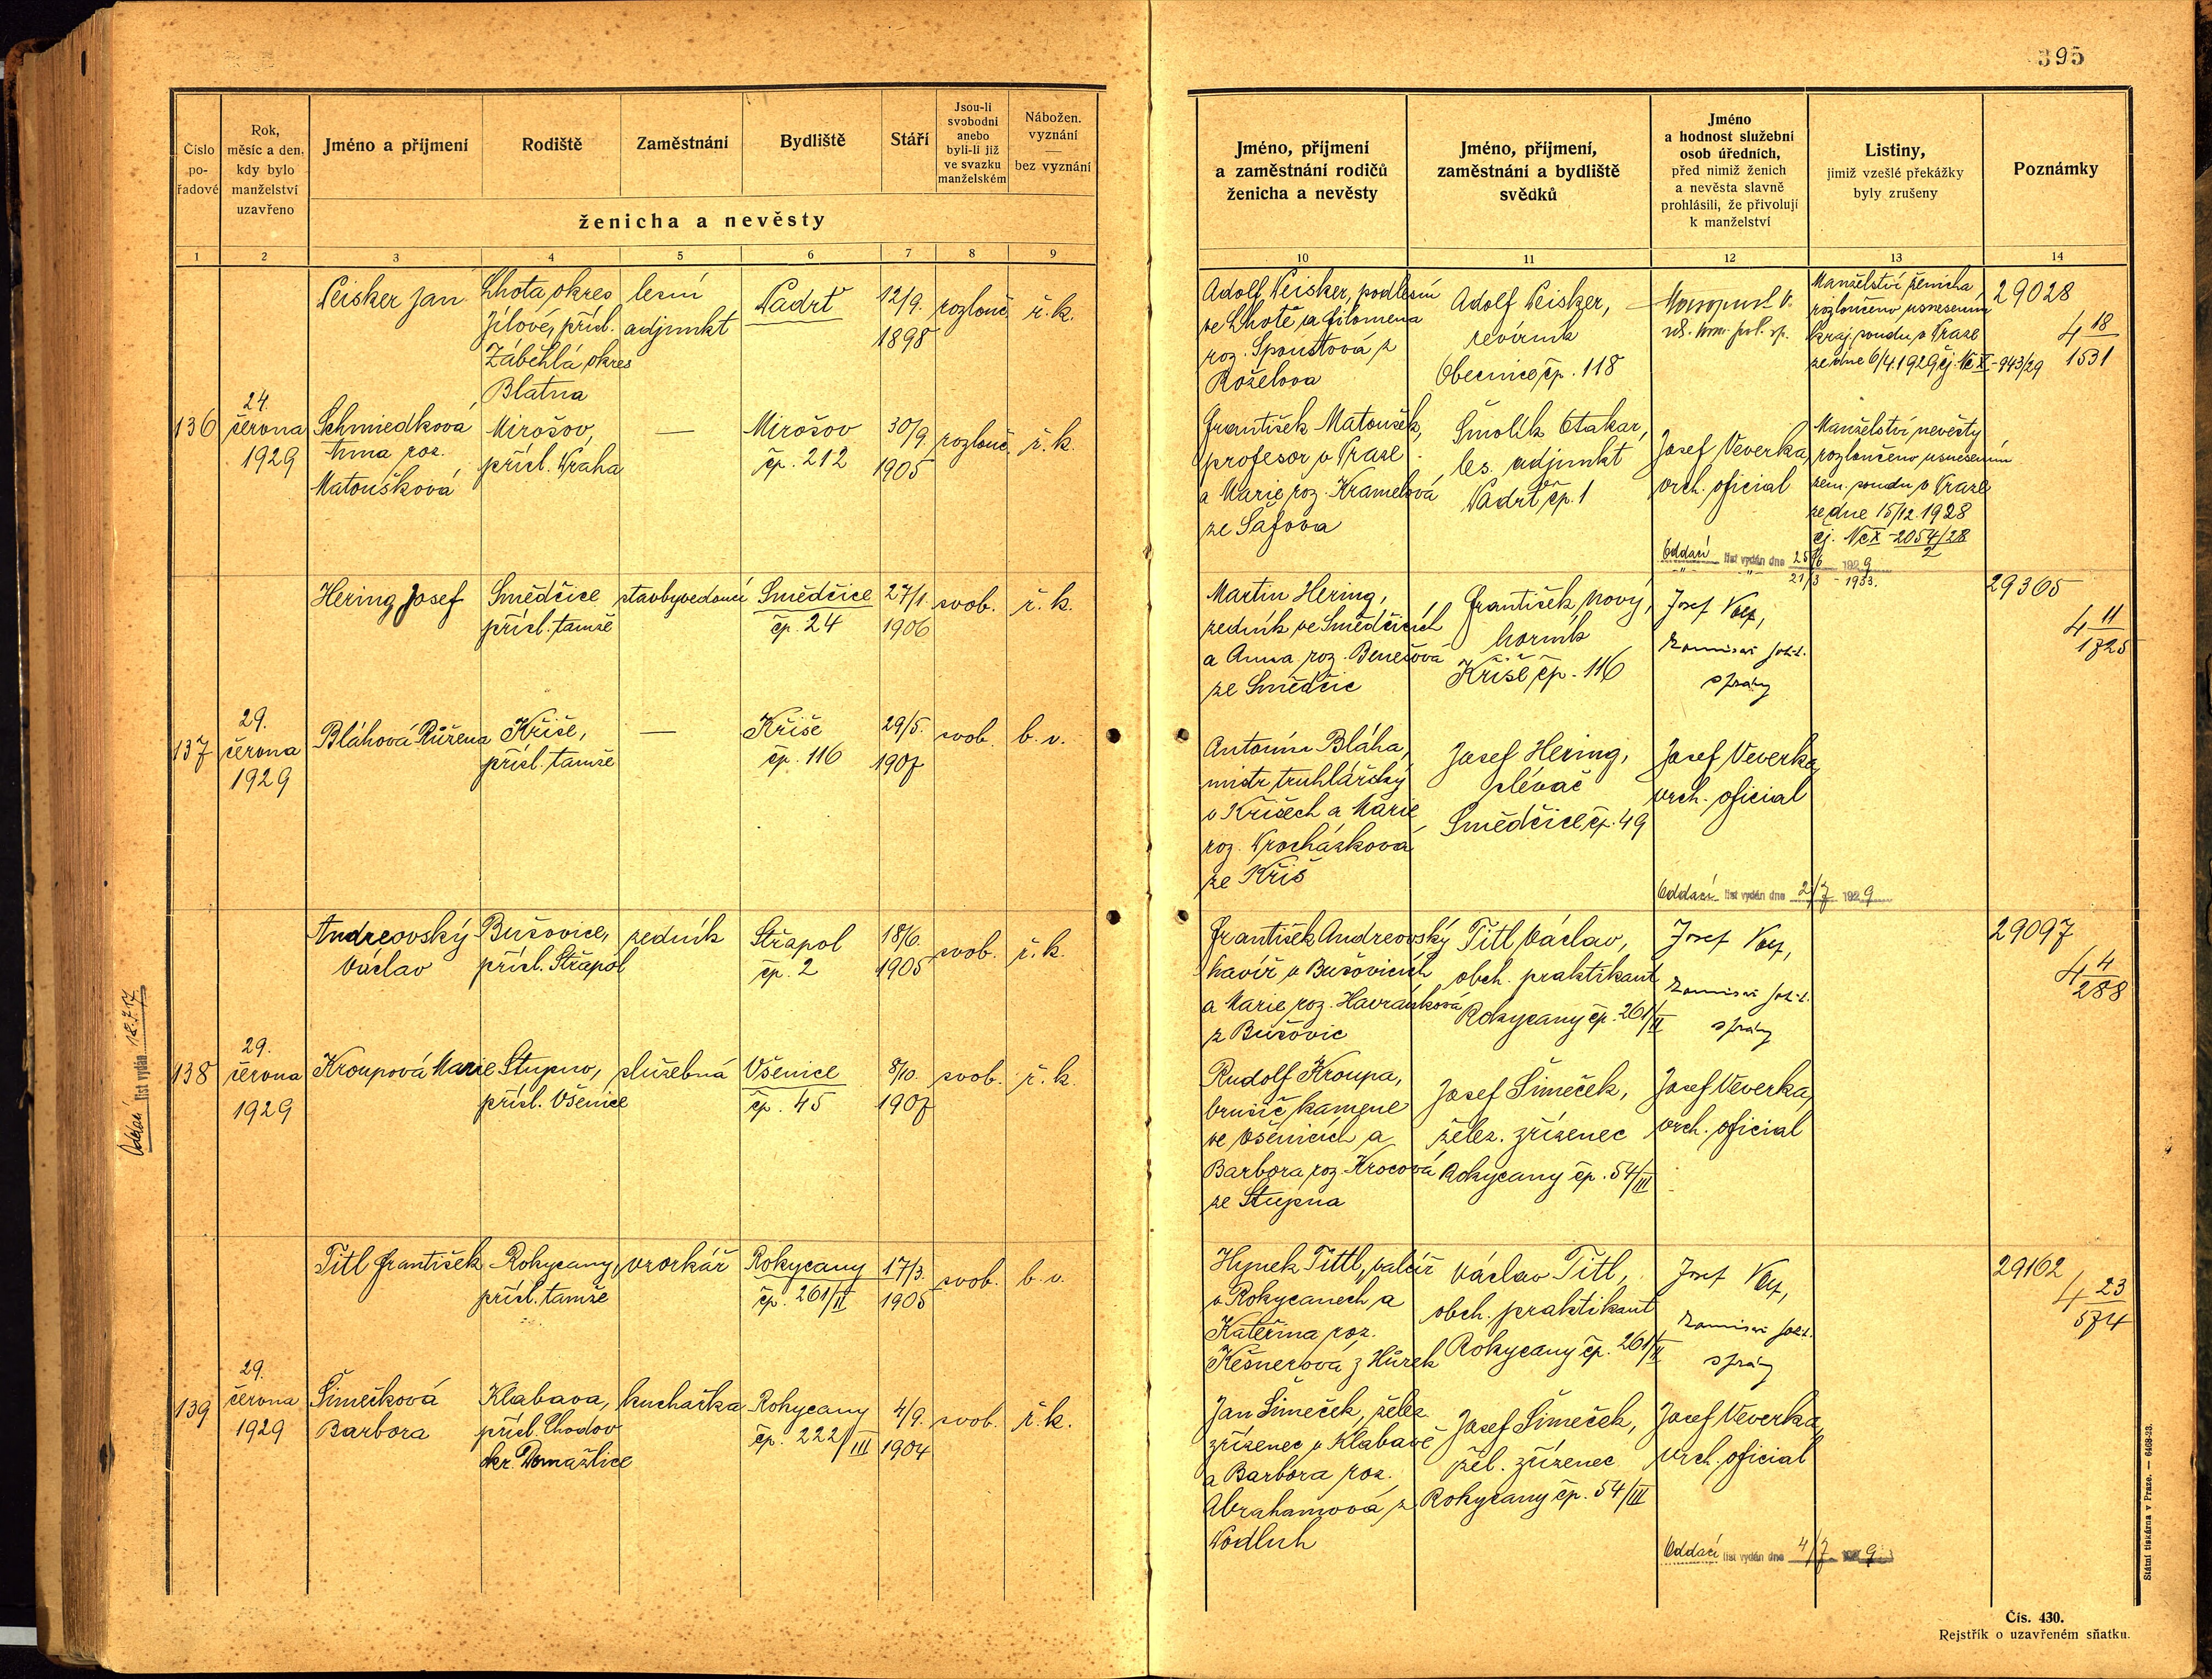 395
Číslo pořadové
Rok, měsíc a den, kdy bylo manželství uzavřeno
Jméno a příjmení
Rodiště
Zaměstnání
Bydliště
Stáří
Jsou-li svobodni anebo byli-li již ve svazku manželském
Nábožen. vyznání — bez vyznání
ženicha a nevěsty
Jméno, příjmení a zaměstnání rodičů ženicha a nevěsty
Jméno, příjmení, zaměstnání a bydliště svědků
Jméno a hodnost služební osob úředních, před nimiž ženich a nevěsta slavně prohlásili, že přivolují k manželství
Listiny, jimiž vzešlé překážky byly zrušeny
Poznámky
1 2 3 4 5 6 7 8 9 10 11 12 13 14
136
24.
června
1929
Peisker Jan
Lhota, okres
Jílové, přísl.
Záběhlá okres
Blatná
lesní
adjunkt
Padrť
12/9.
1898
rozlouč.
ř. k.
Adolf Peisker, podlesní
ve Lhotě a Filomena
roz. Spoustová z
Roželova
Adolf Peisker,
revírník
Obecnice čp. 118
Manželství ženicha
rozloučeno usnesením
kraj. soudu v Praze
ze dne 6/4.1929 čj. Nc X-943/29
29028
4 18
1531
Schmiedková
Anna roz.
Matoušková
Mirošov,
přísl. Praha
—
Mirošov
čp. 212
30/9.
1905
rozlouč.
ř. k.
František Matoušek,
profesor v Praze
a Marie roz. Kramelová
ze Šafova
Šmolík Otakar,
les. adjunkt
Padrť čp. 1
Josef Veverka,
vrch. oficial
Manželství nevěsty
rozloučeno usnesením
zem. soudu v Praze
ze dne 15/12 1928
čj. Nc X-2054/28
2
Oddací list vydán dne 25/6 1929
" " 21/3 - 1933.
137
29.
června
1929
Hering Josef
Smědčice
přísl. tamže
stavbyvedoucí
Smědčice
čp. 24
27/1.
1906
svob.
ř. k.
Martin Hering,
zedník ve Smědčicích
a Anna roz. Benešová
ze Smědčic
František Nový,
horník
Kříše čp. 116
Josef
29305
4 11
1725
Bláhová Růžena
Kříše,
přísl. tamže
—
Kříše
čp. 116
29/5.
1907
svob.
b. v.
Antonín Bláha,
mistr truhlářský
v Kříších a Marie
roz. Procházková
ze Kříš
Josef Hering,
slévač
Smědčice, č. 49
Josef Veverka,
vrch. oficial
Oddací list vydán dne 2/7 1929
138
29.
června
1929
Oddací list vydán
Andreovský
Václav
Bušovice,
přísl. Střapol
zedník
Střapol
čp. 2
18/6.
1905
svob.
ř. k.
František Andreovský
havíř v Bušovicích
a Marie roz. Havránková
z Bušovic
Titl Václav,
obch. praktikant
Rokycany čp. 261/II
Josef
29097
4 4
288
Kroupová Marie
Stupno,
přísl. Všenice
služebná
Všenice
čp. 45
8/10.
1907
svob.
ř. k.
Rudolf Kroupa,
brusič kamene
ve Všenicích a
Barbora roz. Krocová
ze Stupna
Josef Šimeček,
želez. zřízenec
Rokycany čp. 54/III
Josef Veverka,
vrch. oficial
139
29.
června
1929
Titl František
Rokycany,
přísl. tamže
vzorkář
Rokycany
čp. 261/II
17/3.
1905
svob.
b. v.
Hynek Tittl, valcíř
v Rokycanech a
Kateřina roz.
Kešnerová z Hůrek
Václav Titl,
obch. praktikant
Rokycany čp. 261/II
Josef
29162
4 23
574
Šimečková
Barbora
Klabava,
přísl. Chodov
okr. Domažlice
kuchařka
Rokycany
čp. 222/III
4/9.
1904
svob.
ř. k.
Jan Šimeček, želez.
zřízenec v Klabavě
a Barbora roz.
Abrahamová z
Podluh
Josef Šimeček,
žel. zřízenec
Rokycany čp. 54/III
Josef Veverka,
vrch. oficial
Oddací list vydán dne 4/7 1929
Státní tiskárna v Praze. — 6408-23.
Čís. 430.
Rejstřík o uzavřeném sňatku.